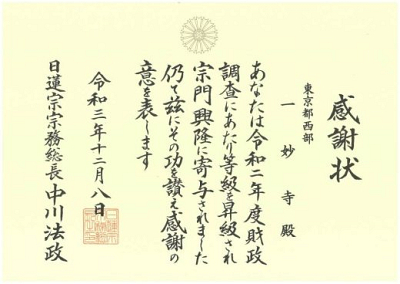 感謝状
東京都西部
一妙寺殿
あなたは令和二年度財政
調査にあたり等級を昇級され
宗門興隆に寄与されました
仍て玆にその功を讃え感謝の
意を表します
令和三年十二月八日
日蓮宗宗務総長 中川法政